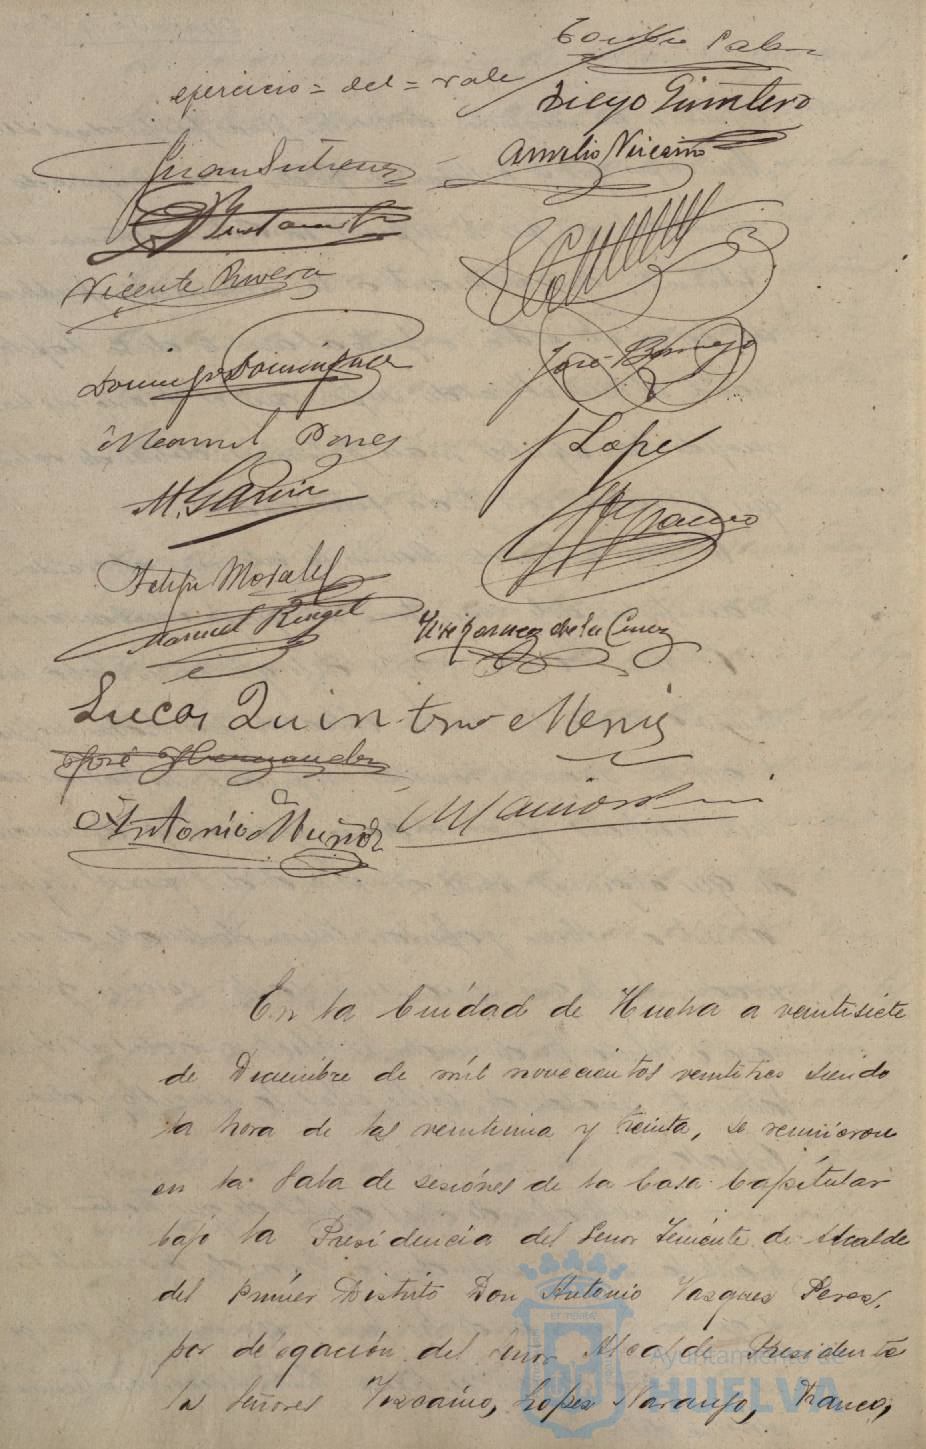 ejercicio = del = vale
Diego Quintero
Aurelio Vizcaino
Juan Gutierrez
Vicente Rivera
Domingo Dominguez
José Bermejo
Manuel Pones
J Lopez
M. Garcia
Franco
Felipe Morales
Manuel Rengel
de la Cruz
Lucas Quintero Mería
José Hernandez
Antonio Muñoz
En la Ciudad de Huelva a veintisiete
de Diciembre de mil novecientos veintitres siendo
la hora de las veintiuna y treinta, se reunieron
en la Sala de sesiónes de la Casa Capitular
bajo la Presidencia del Señor Teniente de Alcalde
del primer Distrito Don Antonio Vazquez Perez,
por delegación del señor Alcalde Presidente
los Señores Vizcaino, Lopez Naranjo, Franco,
Ayuntamiento de
HUELVA